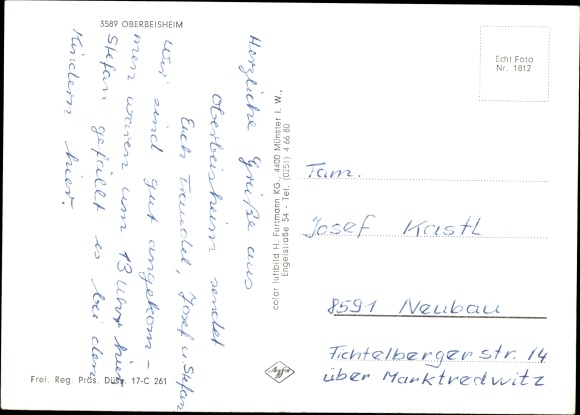 3589 OBERBEISHEIM
Herzliche Grüße aus
Oberbeisheim sendet
Euch Traudel, Josef u. Stefan
Wir sind gut angekom-
men waren um 13 Uhr hier,
Stefan gefällt es bei den
Kindern hier.
Frei. Reg. Präs. Düss. 17-C 261
color luftbild H. Furtmann KG., 4400 Münster i. W.,
Engelstraße 54 - Tel. (0251) 4 66 80
Echt Foto
Nr. 1812
Fam.
Josef Kastl
8591 Neubau
Fichtelberger str. 14
über Marktredwitz